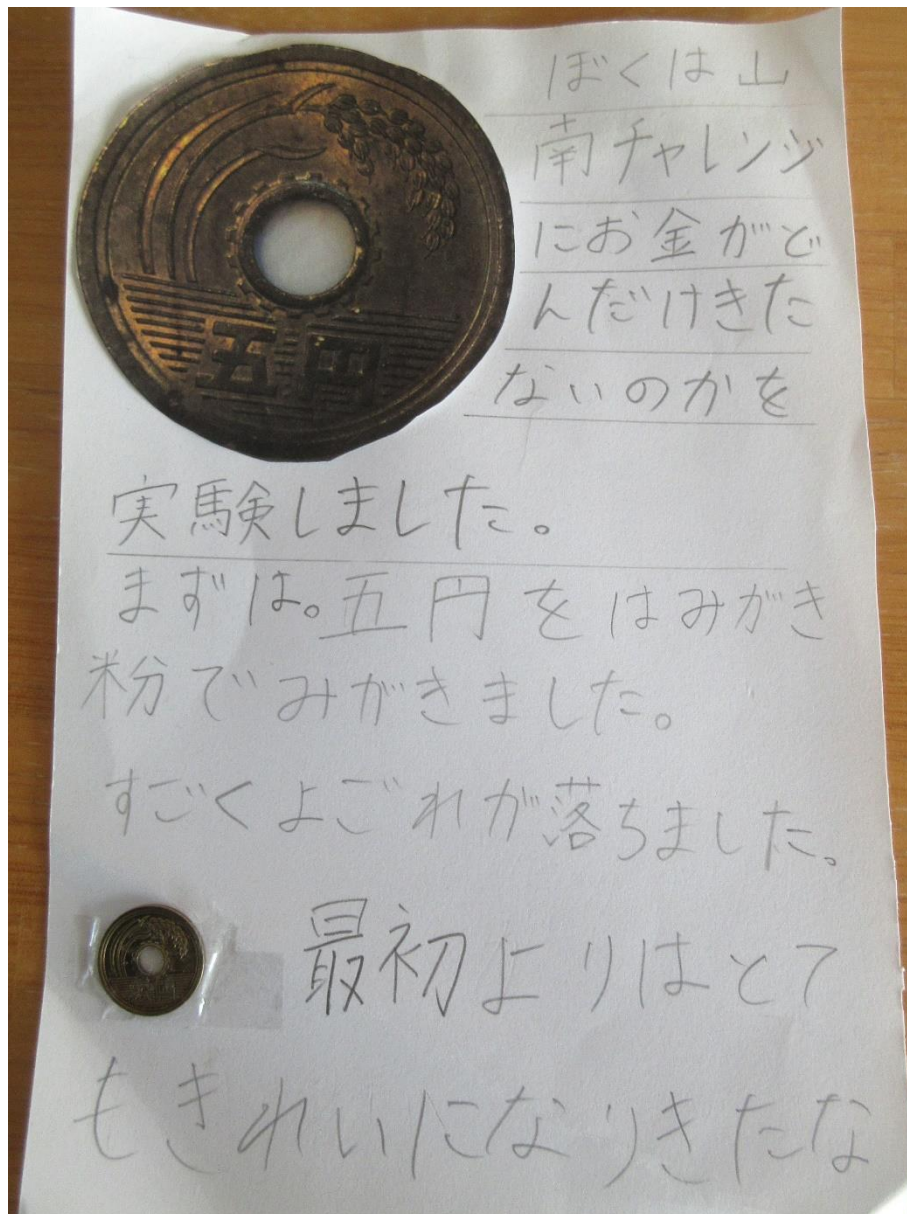 五円
ぼくは山
南チャレンジ
にお金がど
んだけきた
ないのかを
実験しました。
まずは。五円をはみがき
粉でみがきました。
すごくよごれが落ちました。
最初よりはとて
もきれいになりきたな